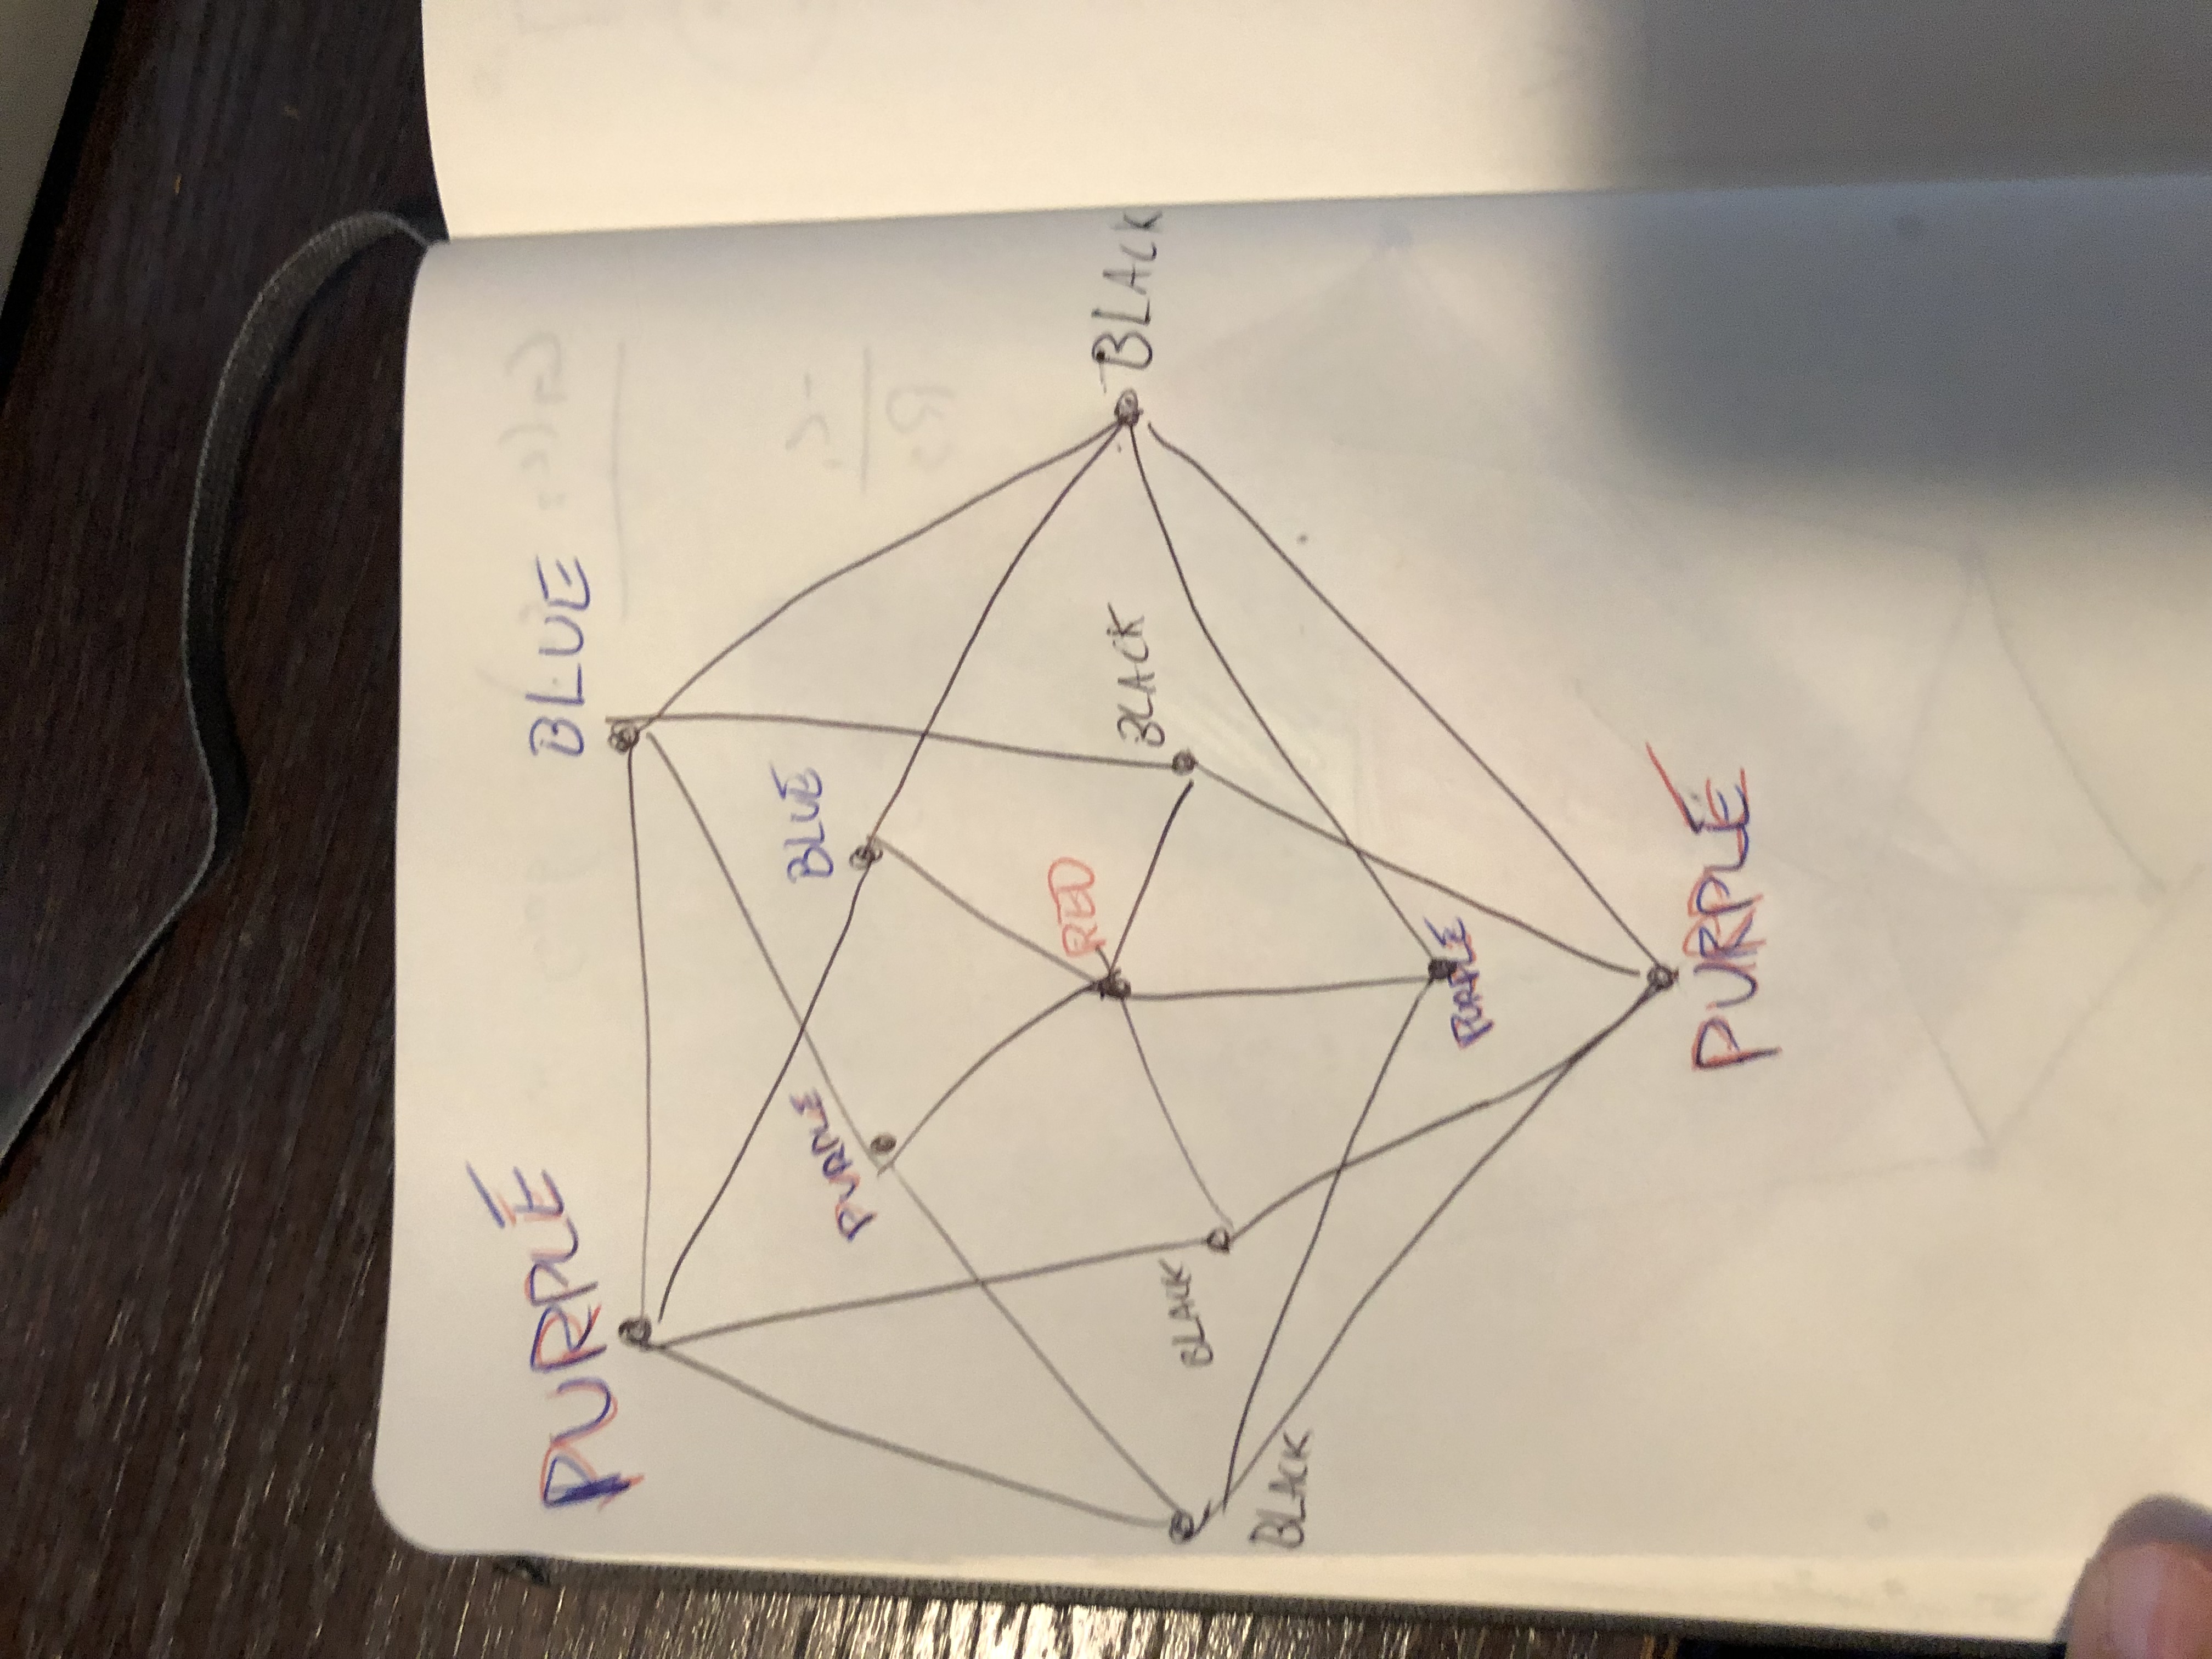 PURPLE
BLUE
PURPLE
BLUE
RED
BLACK
BLACK
BLACK
BLACK
PURPLE
PURPLE